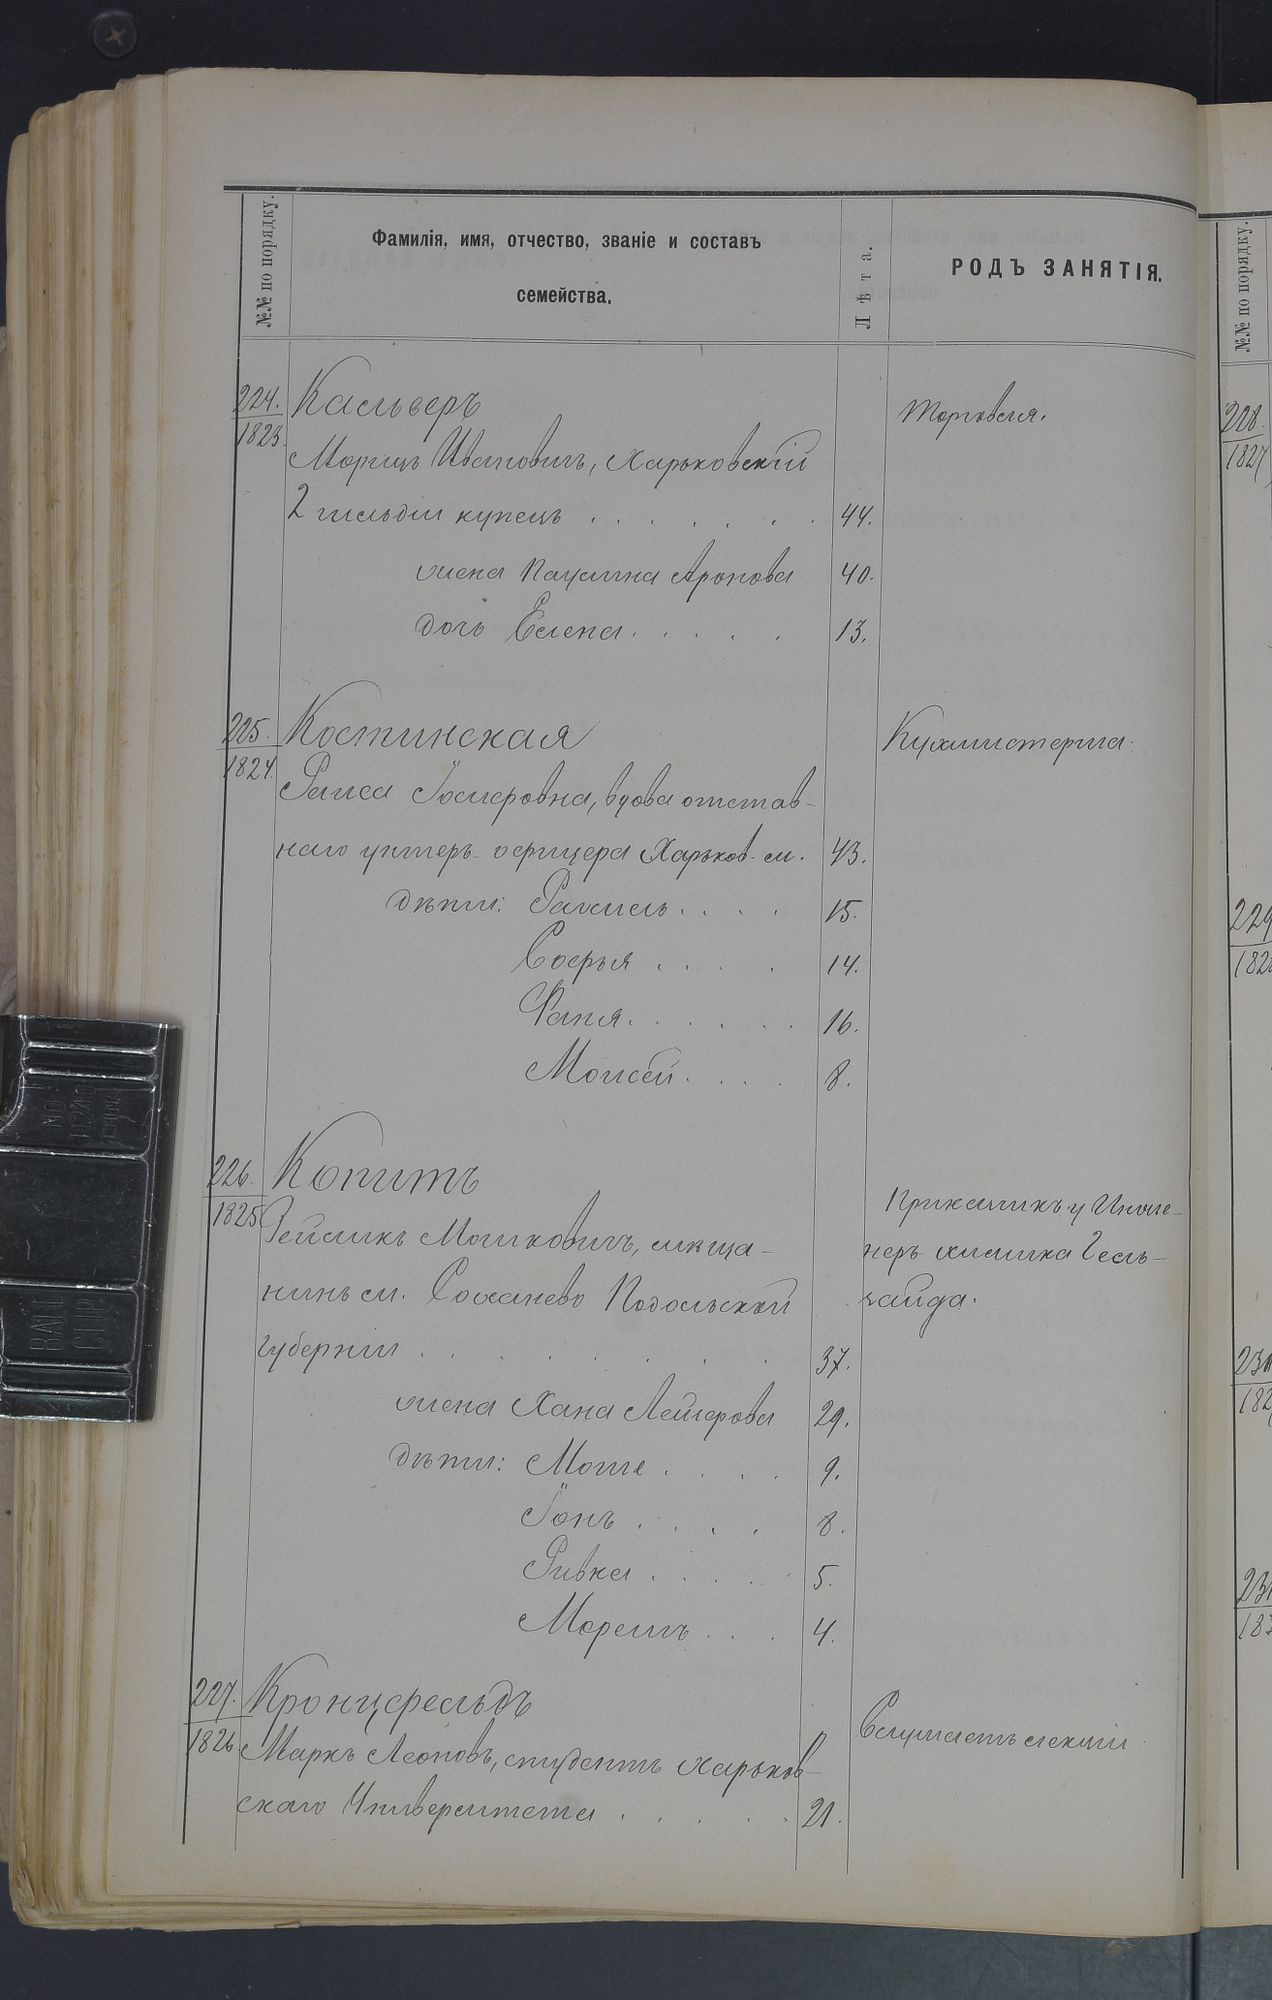 №№ по порядку.
Фамилія, имя, отчество, званіе и составъ
семейства.
Лѣта.
РОДЪ ЗАНЯТІЯ.
224.
1823.
Кальверъ
Торговля.
Морицъ Ивановичъ, Харьковскій
2 гильдіи купецъ . . . . . . . 44.
жена Паулина Аронова 40.
дочь Елена . . . . . 13.
225.
1824.
Костинская
Кухмистерша.
Раиса Іосифовна, вдова отстав-
наго унтеръ-офицера Харьков. м. 43.
дѣти: Рахиль . . . . 15.
Софья . . . . 14.
Фаня . . . . . . 16.
Моисей . . . . 8.
226.
1825.
Копитъ
Прикащикъ у Инже-
Мошковичъ, мѣща-
неръ химика Гель-
нинъ м. Солханево Подольской
файда.
губерніи . . . . . . . 37.
жена Хана Лейзерова 29.
дѣти: Моше . . . . 9.
Іонъ . . . . 8.
Ривка . . . . . 5.
. . . 4.
227.
1826.
Кронцфельдъ
Слушаетъ лекціи.
Маркъ Леоновъ, студентъ Харьков-
скаго Университета . . . . . 21.
№№ по порядку.
228.
1827
229
182
182
183